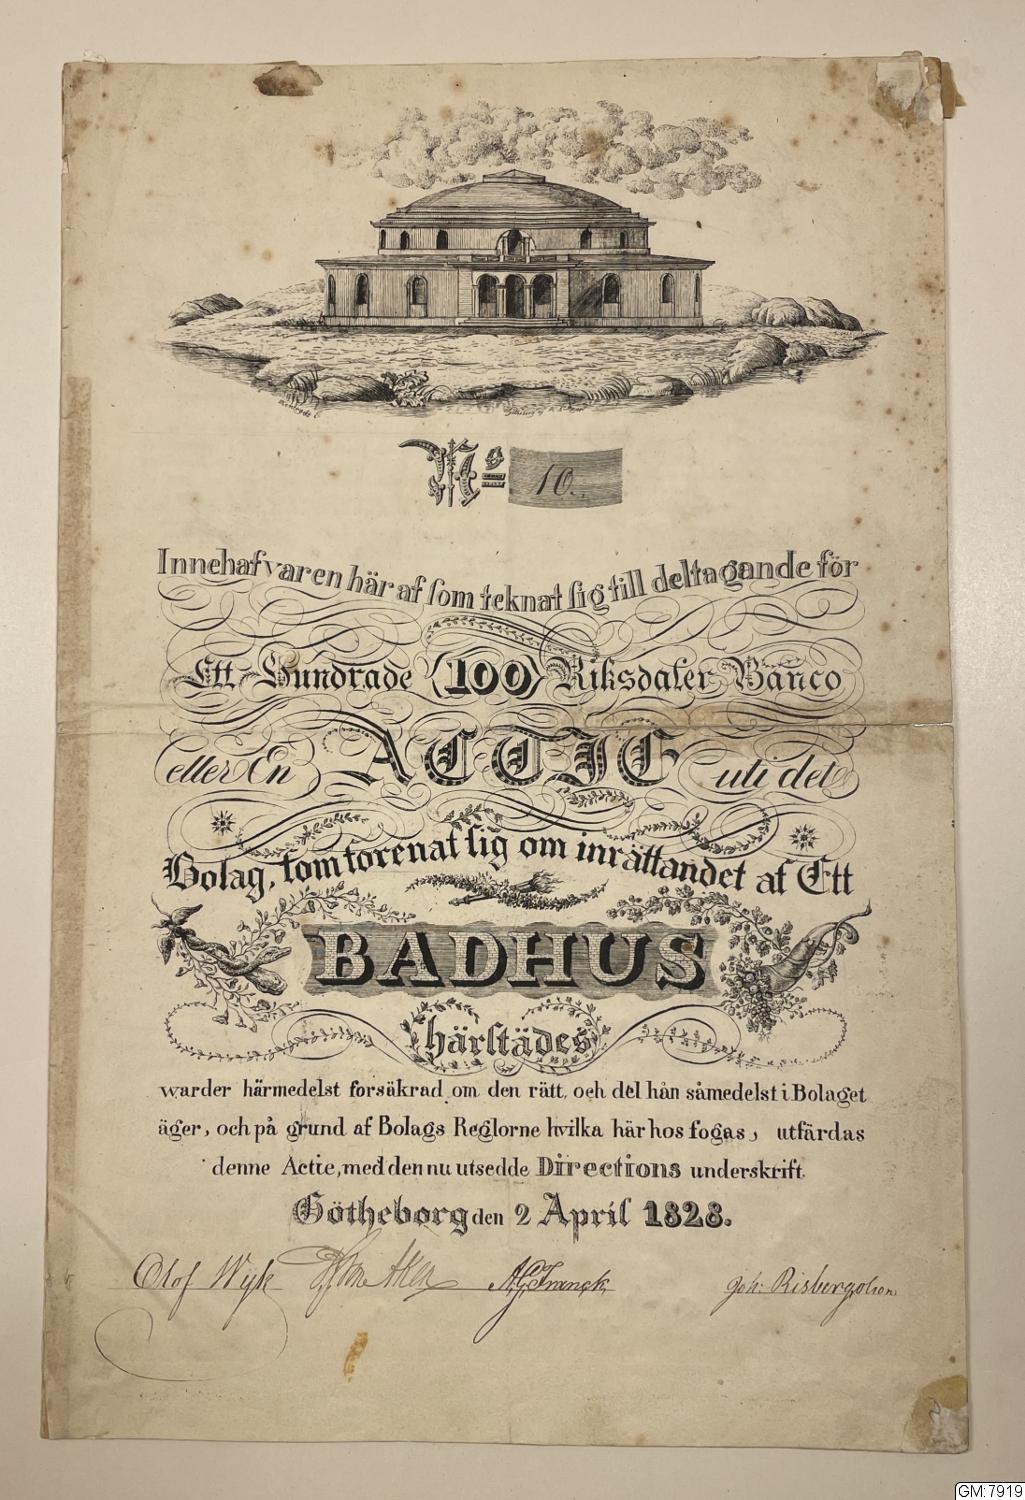 No 10.
Innehafvaren här af som teknat sig till deltagande för
Ett Hundrade (100) Riksdaler Banco
eller En ACTIE uti det
Bolag, som förenat sig om inrättandet af Ett
BADHUS
härstädes
warder härmedelst forsäkrad om den rätt, och del hån såmedelst i Bolaget
äger, och på grund af Bolags Reglorne hvilka här hos fogas, utfärdas
denne Actie, med den nu utsedde Directions underskrift.
Götheborg den 2 April 1828.
Olof Wijk A.G. Franck Joh: Risbergolson
GM:7919